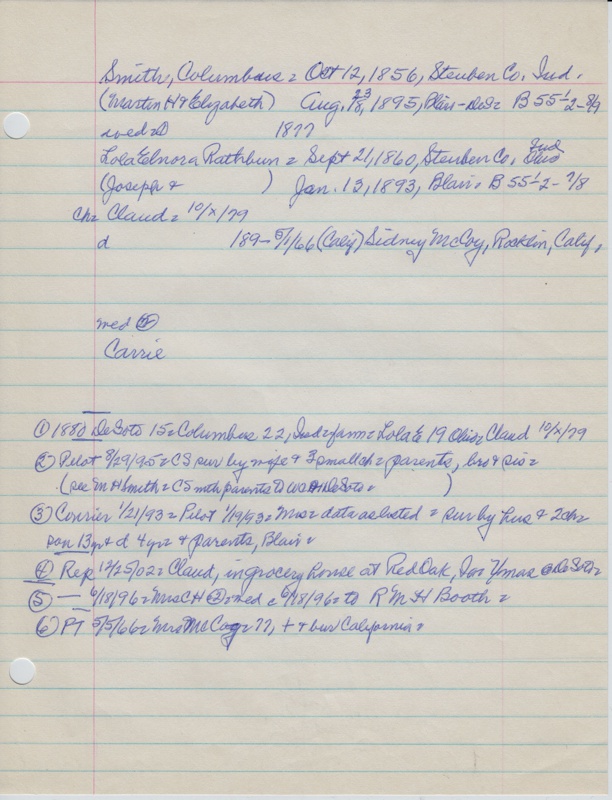 Smith, Columbus = Oct 12, 1856, Steuben Co. Ind.
(Martin H & Elizabeth) Aug. 23 18, 1895, Blair - DeS = B 55-1/2-8/9
wed ① 1877
Lola Elnora Rathbun = Sept 21, 1860, Steuben Co. Ind
(Joseph & ) Jan. 13, 1893, Blair = B 55-1/2-7/8
ch = Claud = 10/x/79
d 189- 5/1/66 (Calif) Sidney McCoy, Rocklin, Calif,
wed ②
Carrie
① 1880 DeSoto 15 = Columbus 22, Ind = farm = Lola E 19 Ohio = Claud 10/x/79
② Pilot 8/29/95 = CS sur by wife & 3 small ch = parents, bro & sis =
(see M H Smith = CS with parents to DeSoto = )
③ Courier 1/21/93 = Pilot 1/19/93 = Mrs = data as listed = sur by hus & 2 ch =
son 13 yr & d 4 yrs & parents, Blair =
④ Rep 12/25/02 = Claud, in grocery house at Red Oak, Ioa Xmas @ DeSoto =
⑤ — 6/18/96 = Mrs C H ② = wed = 6/18/96 = to R M H Booth =
⑥ PT 5/5/66 = Mrs McCoy = 77, + & bur California =